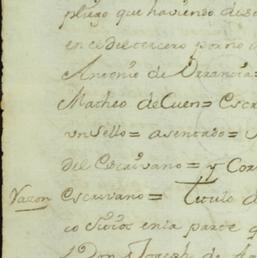 pliego que haviendo
en ce de tercero por no
Antonio de Urrancia=
Matheo de Cuen= Escri
un Sello= asentado=
del Escrivano= y Cor
Razon Escrivano= Titulo d
co en la parte q
Don Joseph de